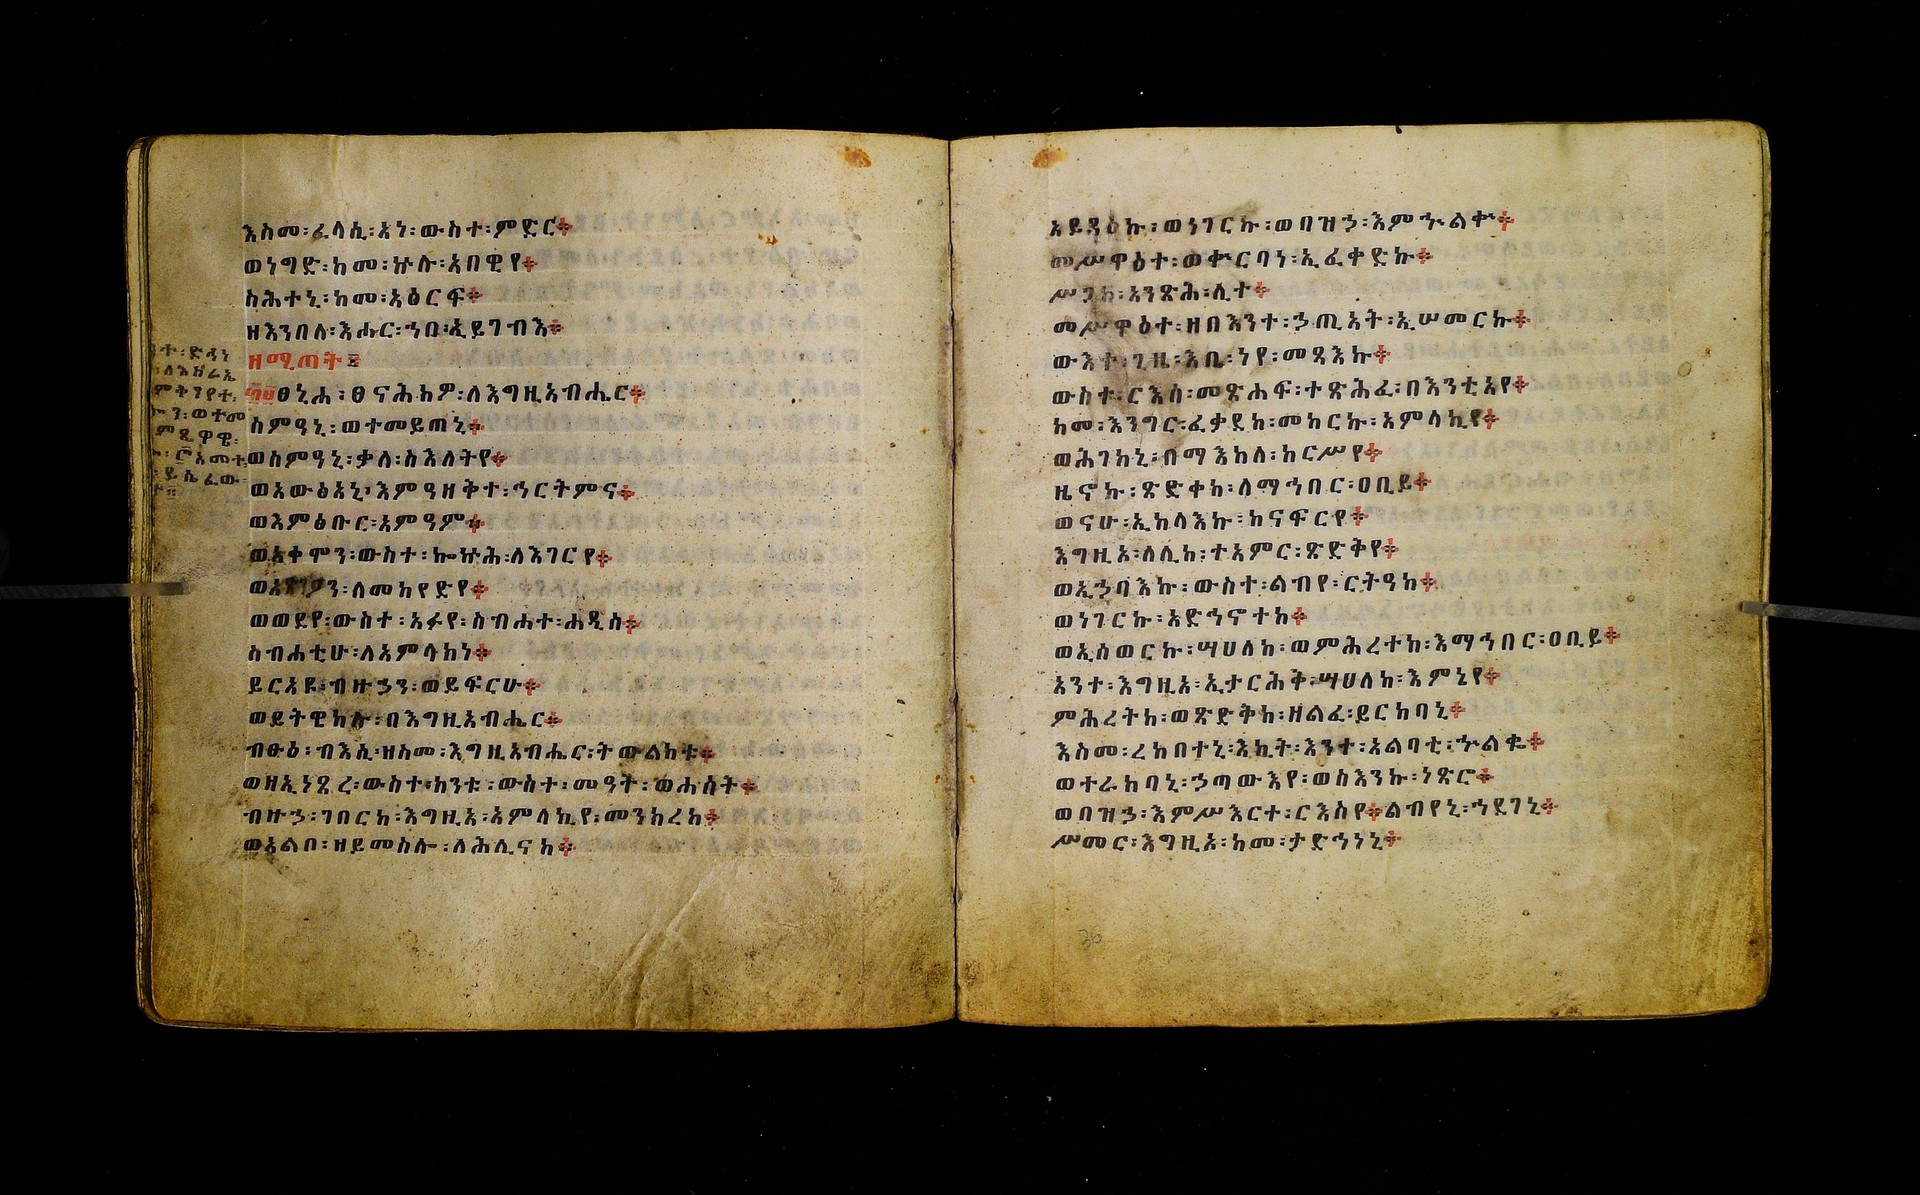 እስመ፡ፈላሲ፡አነ፡ውስተ፡ምድር፨
ወነግድ፡ከመ፡ኵሉ፡አበዊየ፨
ስሕተኒ፡ከመ፡አዕርፍ፨
ዘእንበለ፡እሑር፡ኀበ፡ኢይገብእ፨
ዘሚጠት፤
፴፱ፀኒሐ፡ፀናሕክዎ፡ለእግዚአብሔር፨
ሰምዓኒ፡ወተመይጠኒ፨
ወሰምዓኒ፡ቃለ፡ስእለትየ፨
ወአውፅአኒ፡እምዓዘቅተ፡ኅርትምና፨
ወእምፅቡር፡አምዓም፨
ወአቀሞን፡ውስተ፡ኰኵሕ፡ለእገርየ፨
ወአጽንዖን፡ለመከየድየ፨
ወወደየ፡ውስተ፡አፉየ፡ስብሐተ፡ሐዲስ፨
ስብሐቲሁ፡ለአምላክነ፨
ይርአዩ፡ብዙኃን፡ወይፍርሁ፨
ወይትዌከሉ፡በእግዚአብሔር፨
ብፁዕ፡ብእሲ፡ዘስመ፡እግዚአብሔር፡ትውልክቱ፨
ወዘኢነጸረ፡ውስተ፡ከንቱ፡ውስተ፡መዓት፡ወሐሰት፨
ብዙኃ፡ገበርከ፡እግዚአ፡አምላኪየ፡መንክረከ፨
ወአልቦ፡ዘይመስሎ፡ለሕሊናከ፨
አይዳዕኩ፡ወነገርኩ፡ወበዝኃ፡እምኍልቍ፨
መሥዋዕተ፡ወቍርባነ፡ኢፈቀድኩ፨
ሥጋከ፡አንጽሕ፡ሊተ፨
መሥዋዕተ፡ዘበእንተ፡ኃጢአት፡ኢሠመርኩ፨
ውእተ፡ጊዜ፡እቤ፡ነየ፡መጻእኩ፨
ውስተ፡ርእሰ፡መጽሐፍ፡ተጽሕፈ፡በእንቲአየ፨
ከመ፡እንግር፡ፈቃደከ፡መከርኩ፡አምላኪየ፨
ወሕገከኒ፡በማእከለ፡ከርሥየ፨
ዜኖኩ፡ጽድቀከ፡ለማኅበር፡ዐቢይ፨
ወናሁ፡ኢከላእኩ፡ከናፍርየ፨
እግዚአ፡ለሊከ፡ተአምር፡ጽድቅየ፨
ወኢኃባእኩ፡ውስተ፡ልብየ፡ርትዓከ፨
ወነገርኩ፡አድኅኖተከ፨
ወኢሰወርኩ፡ሣህለከ፡ወምሕረተከ፡እማኅበር፡ዐቢይ፨
አንተ፡እግዚአ፡ኢታርሕቅ፡ሣህለከ፡እምኒየ፨
ምሕረትከ፡ወጽድቅከ፡ዘልፈ፡ይርከባኒ፨
እስመ፡ረከበተኒ፡እኪት፡እንተ፡አልባቲ፡ኍልቈ፨
ወተራከባኒ፡ኃጣውእየ፡ወስእንኩ፡ነጽሮ፨
ወበዝኃ፡እምሥእርተ፡ርእስየ፨ልብየኒ፡ኀደገኒ፨
ሥመር፡እግዚአ፡ከመ፡ታድኅነኒ፨